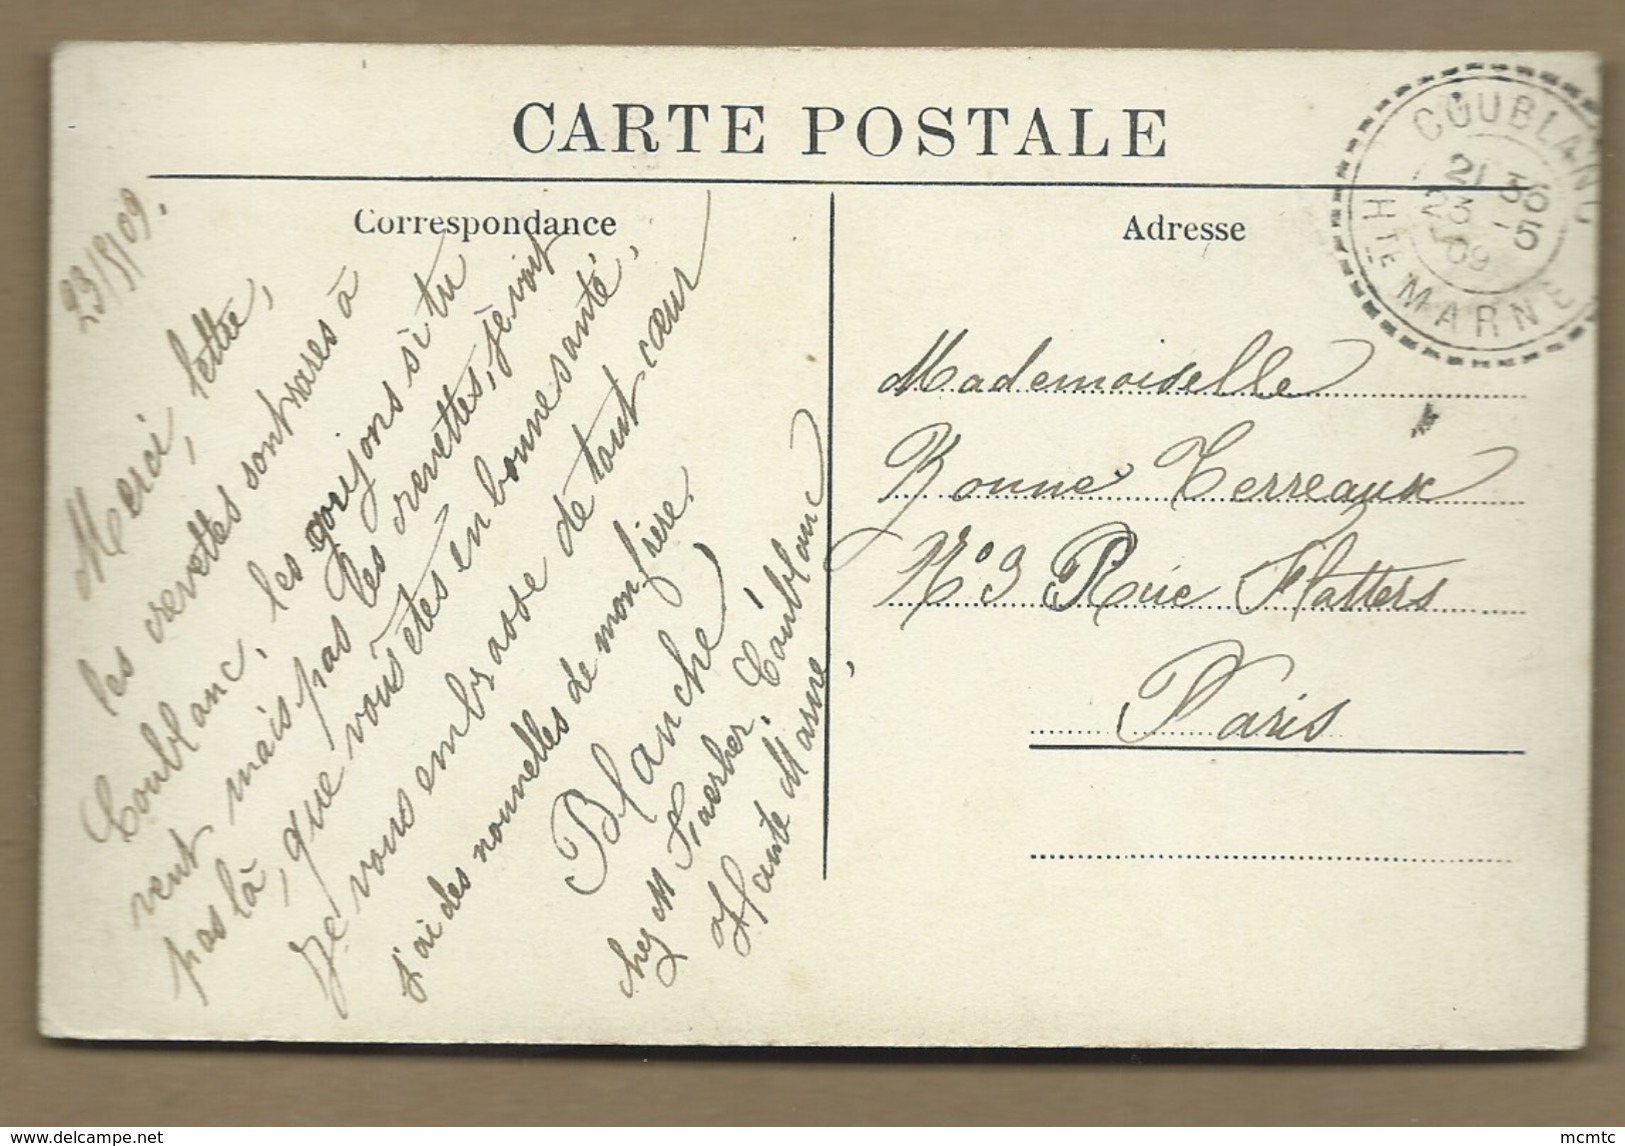 CARTE POSTALE
Correspondance
23/5/09.
Merci, lettre,
les crevettes sont rares à
Coublanc, les goujons si tu
veux mais pas les crevettes, je vois
pas là, que vous êtes en bonne santé,
Je vous embrasse de tout cœur
j'ai des nouvelles de mon frère.
Blanche
chez M Coublanc
Haute Marne,
Adresse
Mademoiselle
Terreaux
N° 3 Rue Flatters
Paris
COUBLANC
21 36
23 -5
09
Hte MARNE
mcmtc